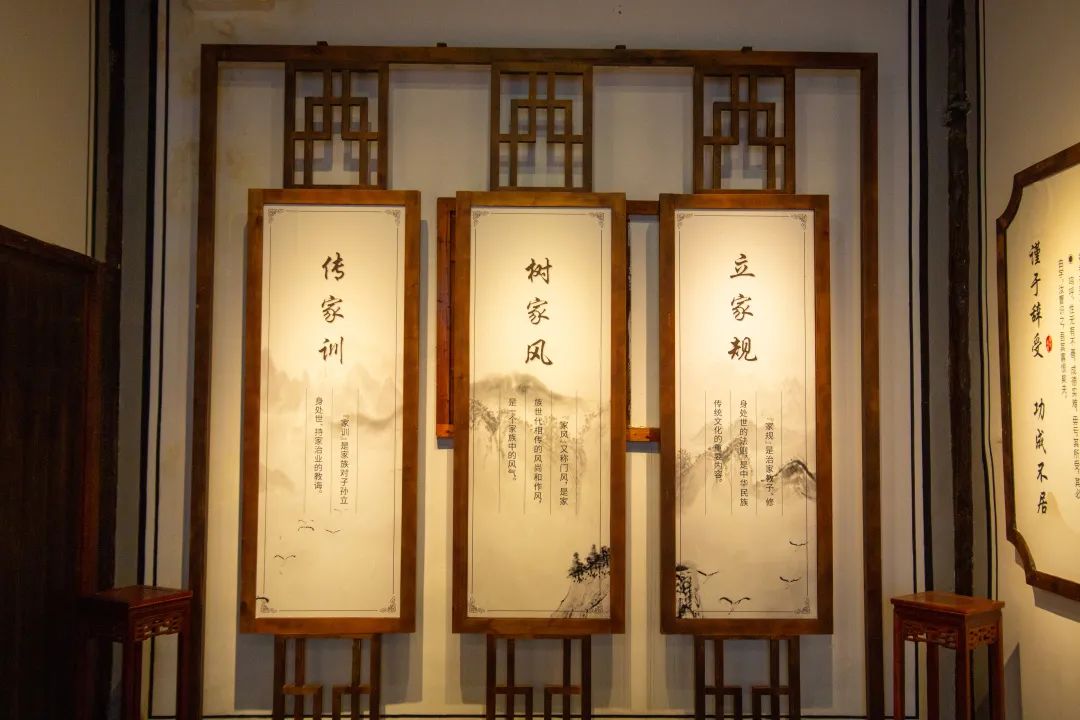 传家训
『家训』是家族对子孙立
身处世、持家治业的教诲。
树家风
『家风』又称门风，是家
族世代相传的风尚和作风，
是一个家族中的风气。
立家规
『家规』是治家教子、修
身处世的法则，是中华民族
传统文化的重要内容。
谨于辞受 功成不居